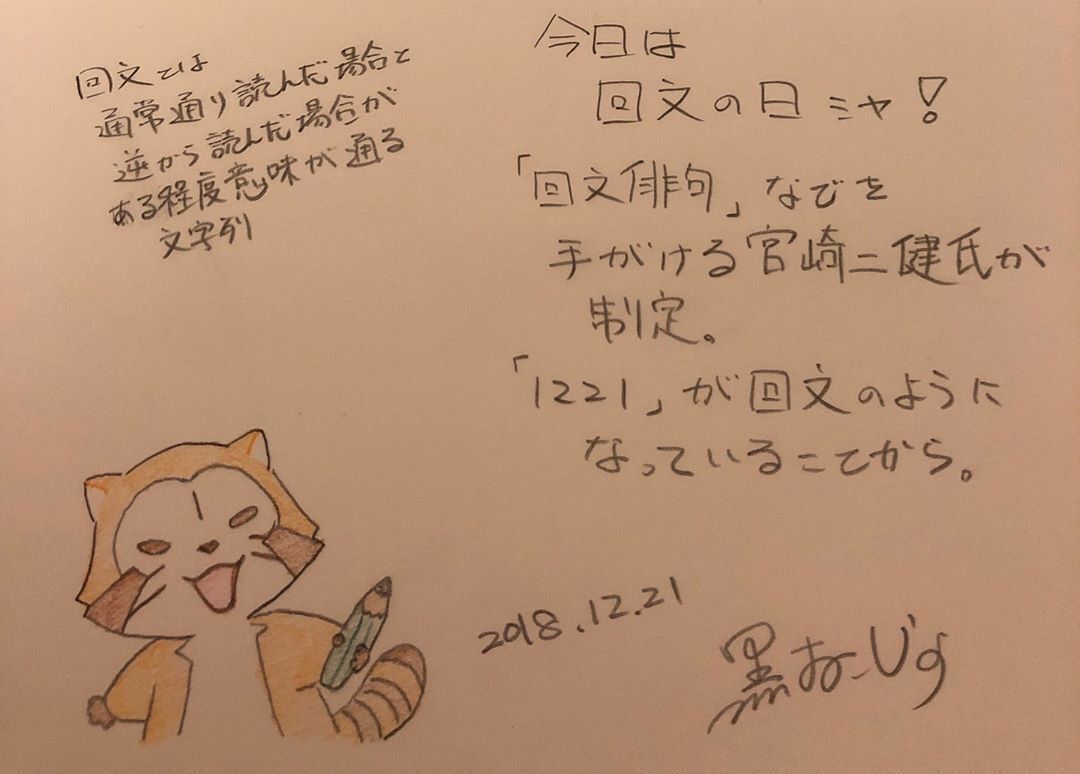 今日は
回文の日ミャ!
「回文俳句」などを
手がける宮崎二健氏が
制定。
「1221」が回文のように
なっていることから。
回文とは
通常通り読んだ場合と
逆から読んだ場合が
ある程度意味が通る
文字列
2018.12.21
黒おーじす